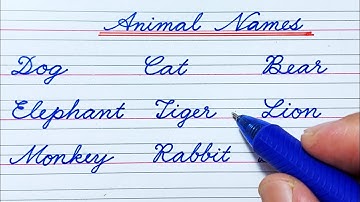 Animal Names
Dog Cat Bear
Elephant Tiger Lion
Monkey Rabbit